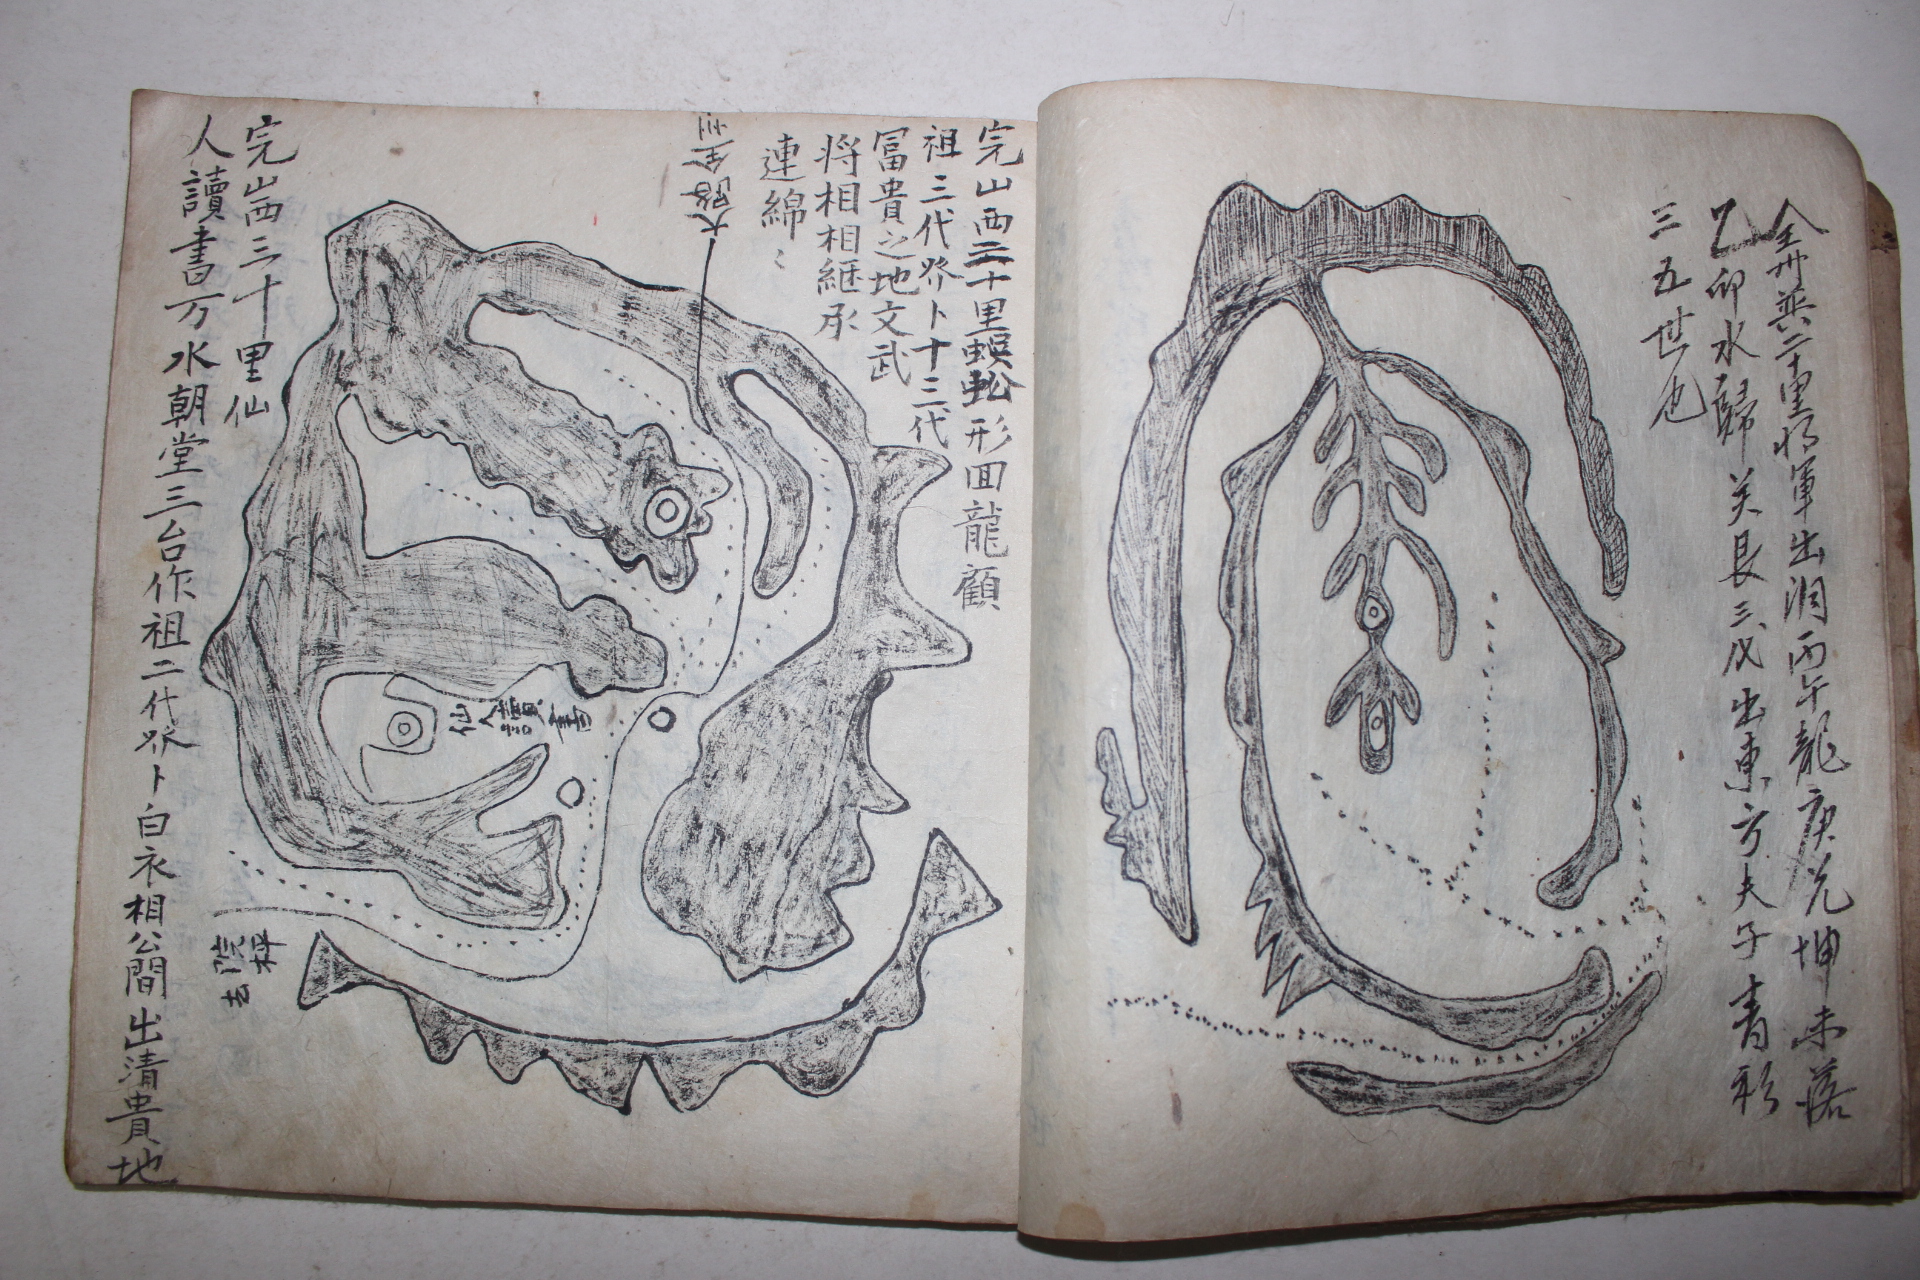 全州 二十里將軍出洞丙午龍庚兌坤未落
乙卯水歸 艮三戊出東方夫子青衫
三五世也
完山西二十里蜈蚣形回龍顧
祖三代 卜十三代
冨貴之地文武
将相相継承
連綿〻
大路全州
完山西三十里仙
人讀書万水朝堂三台作祖二代 卜白衣相公間出清貴地
仙人讀書
院坪
去